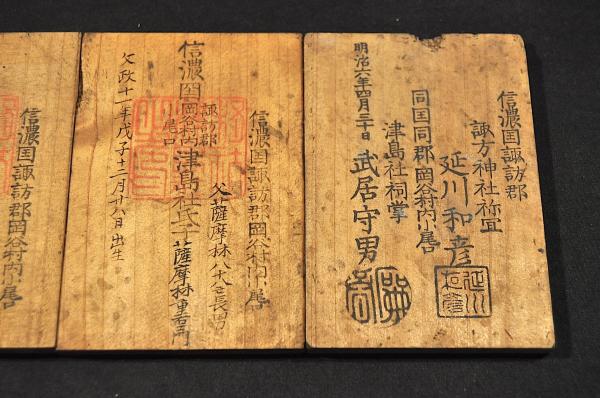 信濃国諏訪郡
諏方神社祢冝
延川和彦
同国同郡岡谷村内小尾口
津島社祠掌
武居守男
明治六年四月三十日
信濃国諏訪郡岡谷村内小尾口
父薩摩林八 長男
信濃国諏訪郡岡谷村内小尾口津島社氏子薩摩林重右衛門
文政十一年戊子十二月廿八日出生
信濃国諏訪郡岡谷村内小尾口